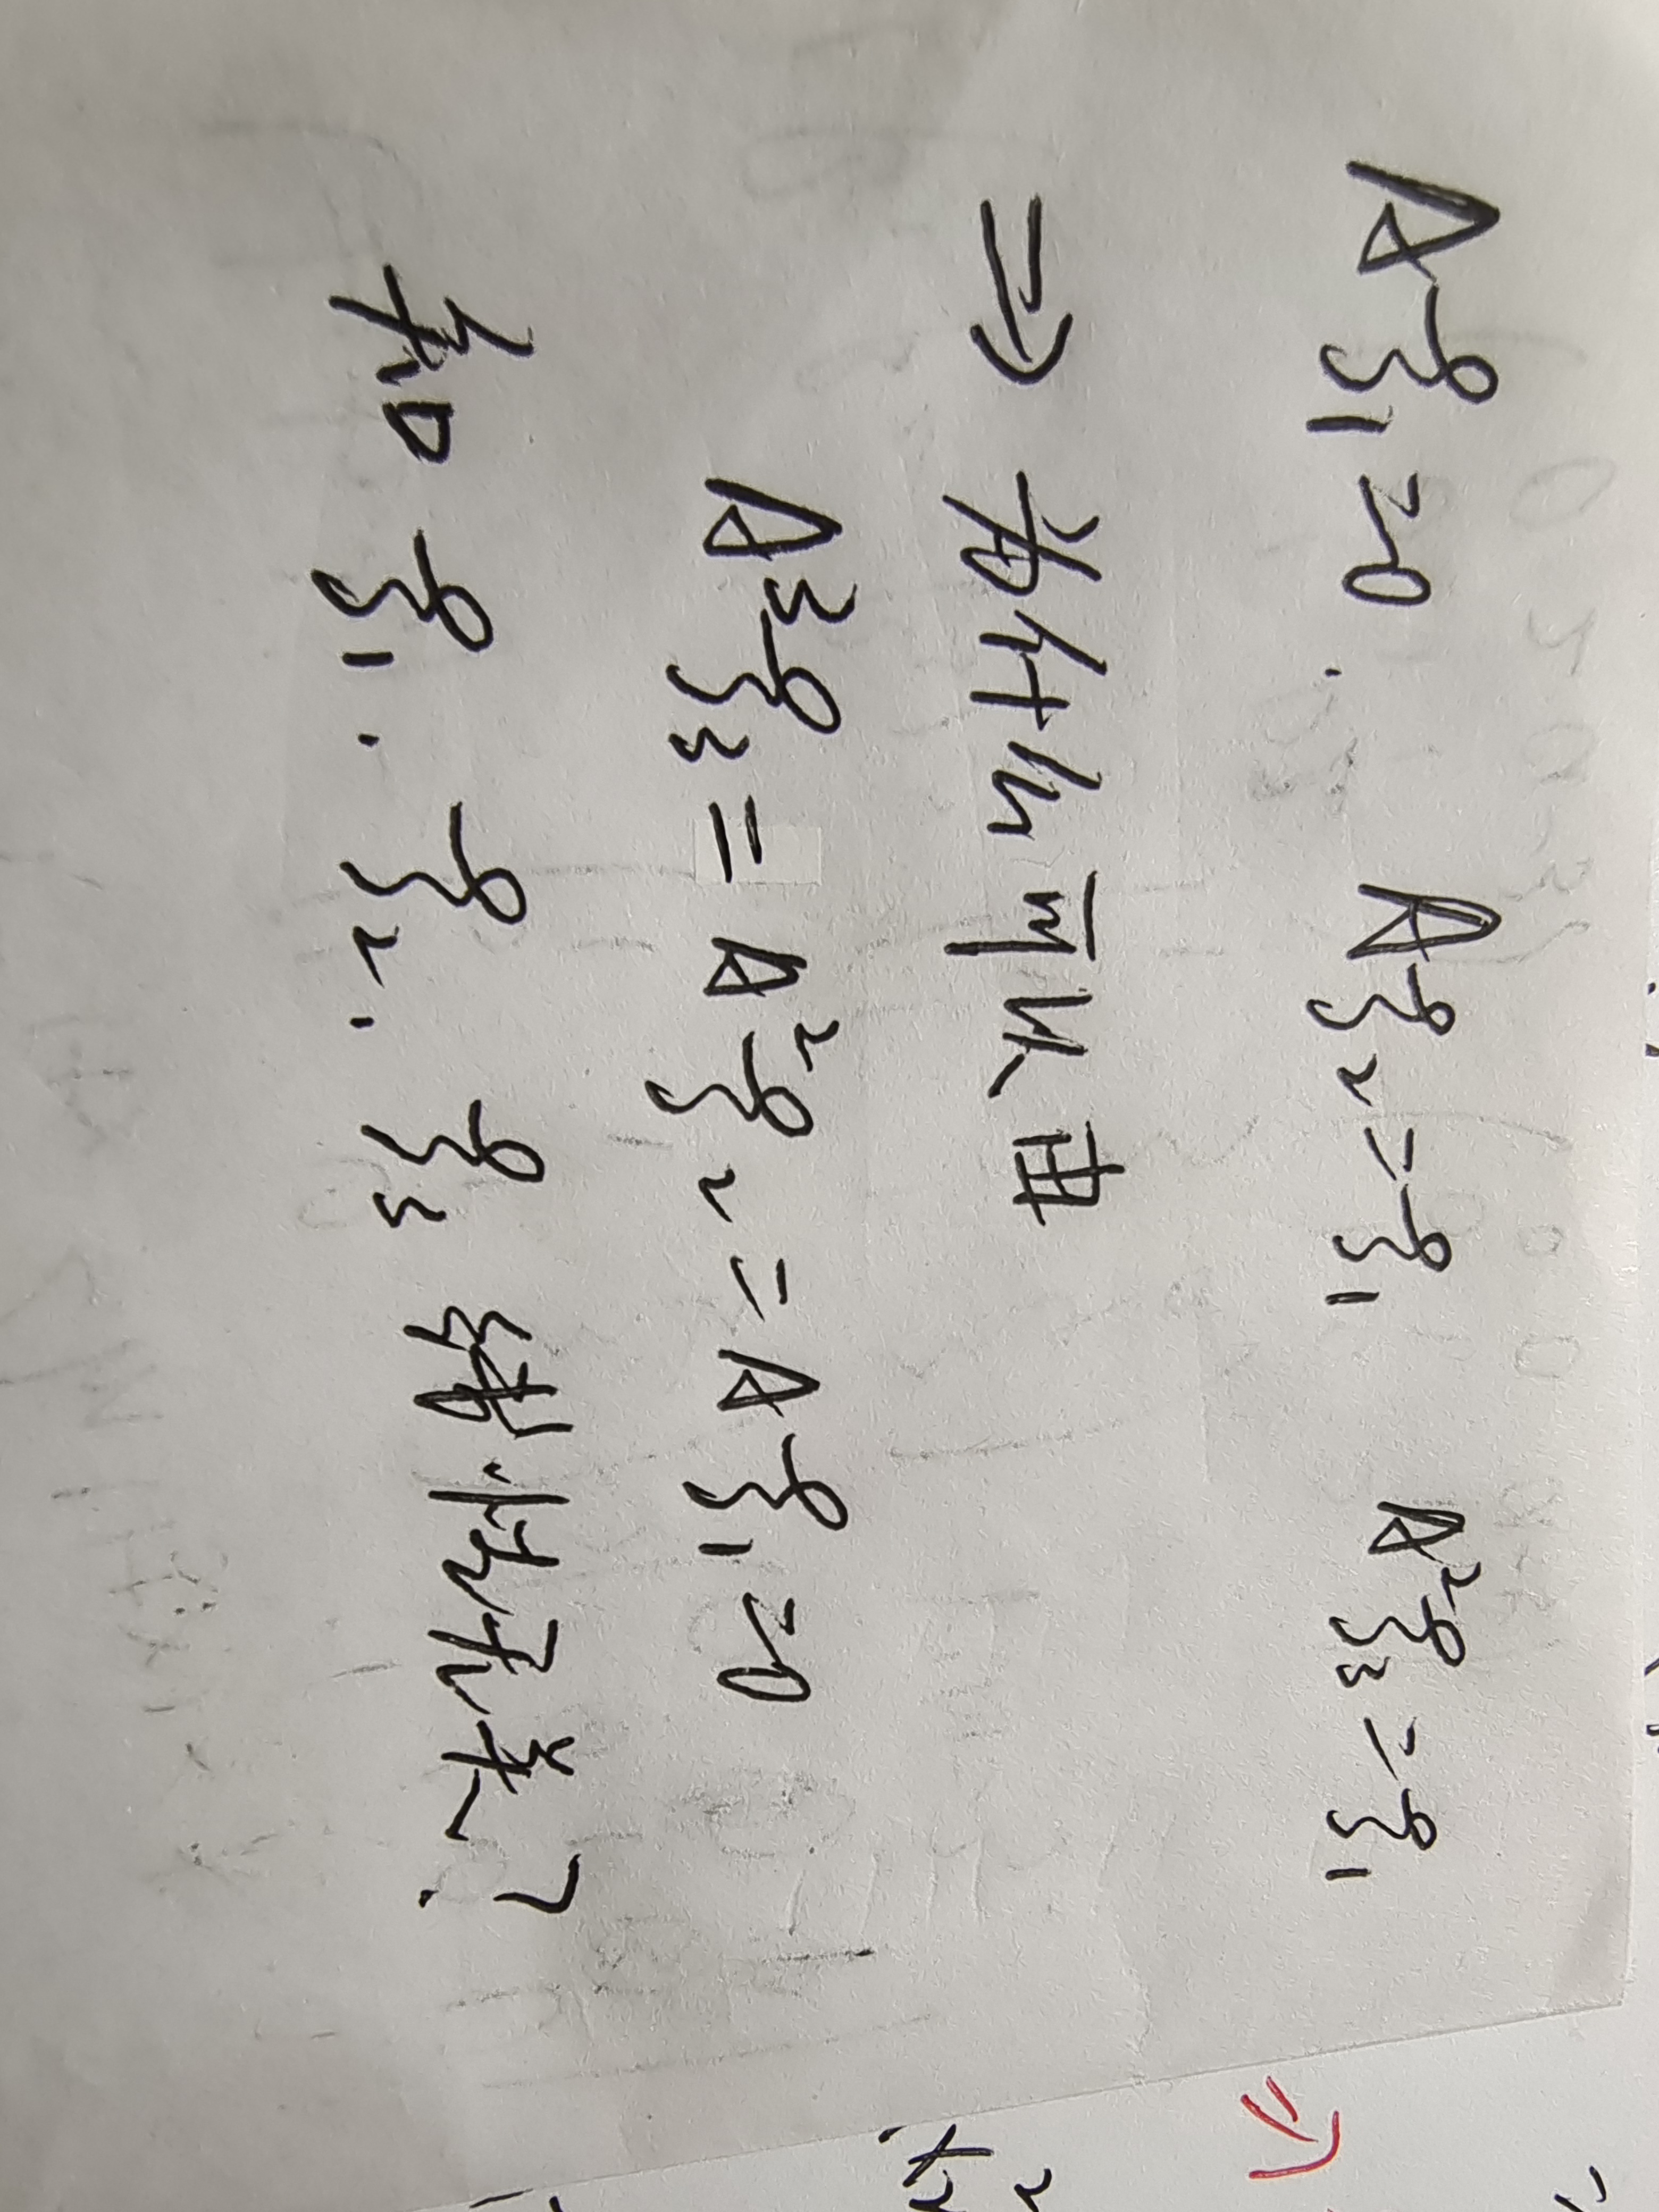 Aξ₁=0. Aξ₂=ξ₁ A²ξ₃=ξ₁
⇒ 为什么可以由
A³ξ₃=A²ξ₂=Aξ₁=0
知 ξ₁. ξ₂. ξ₃ 线性无关?